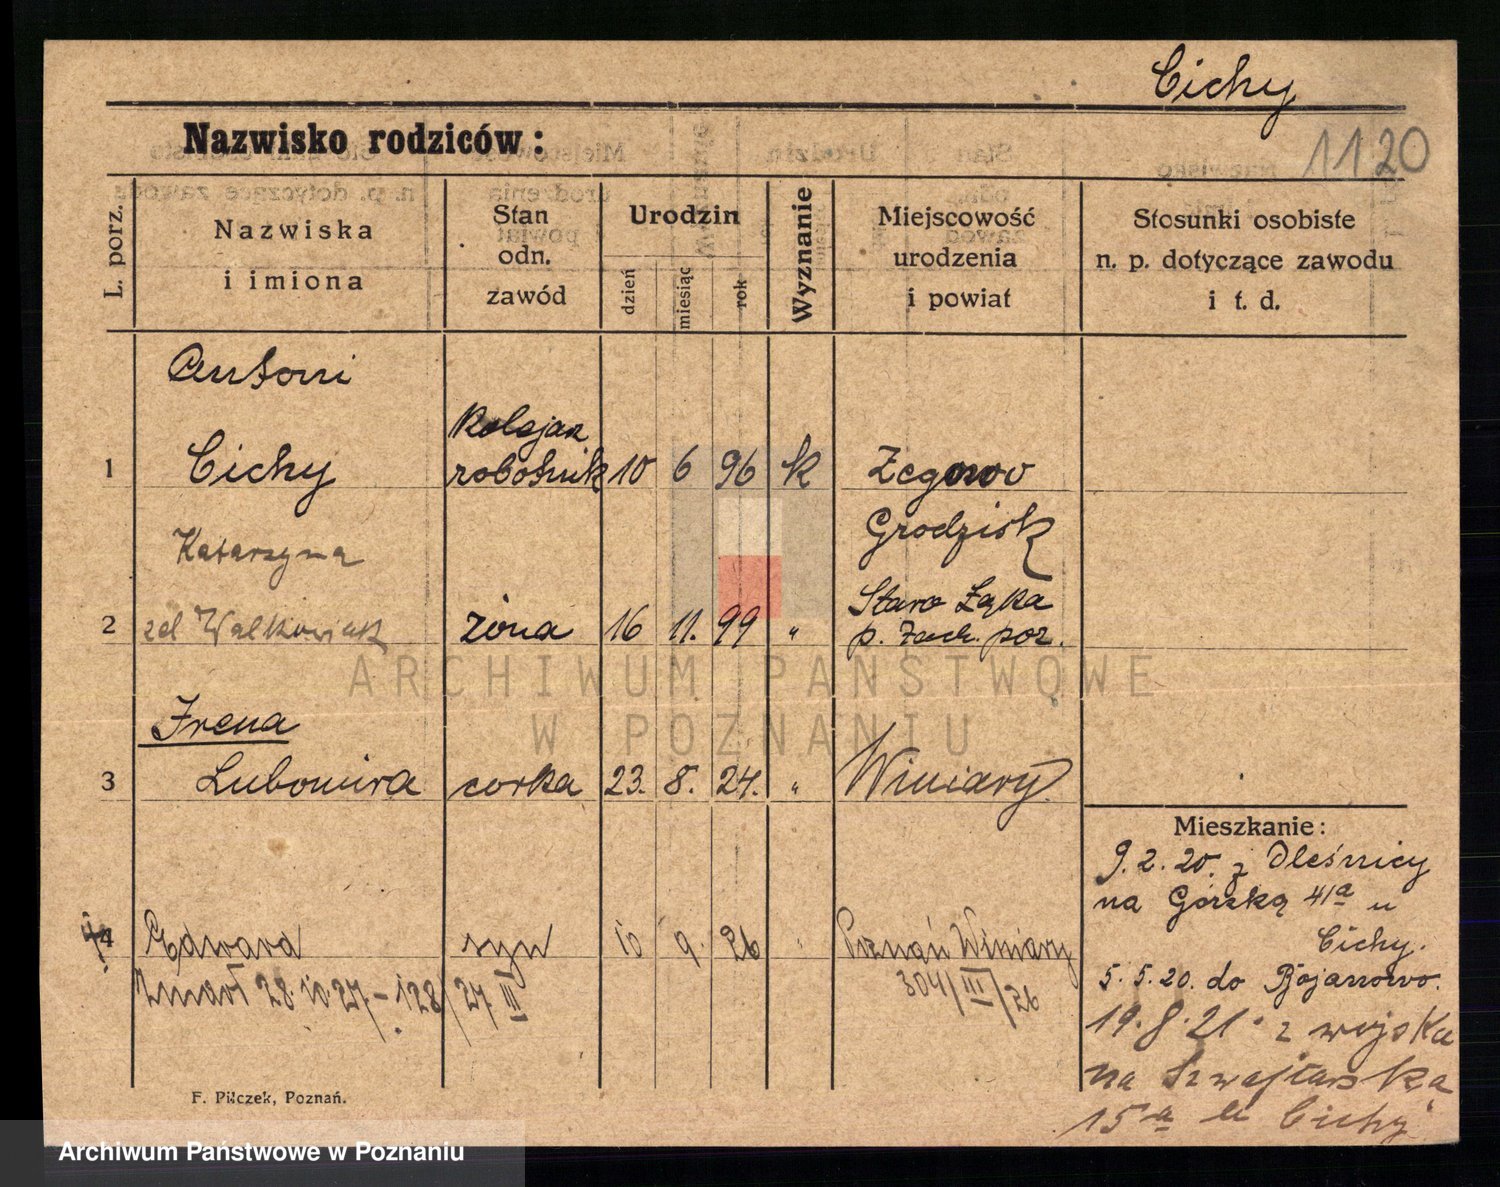 Cichy
Nazwisko rodziców:
1120
L. porz.
Nazwiska
i imiona
Stan
odn.
zawód
Urodzin
dzień
miesiąc
rok
Wyznanie
Miejscowość
urodzenia
i powiat
Stosunki osobiste
n. p. dotyczące zawodu
i t. d.
Antoni
kolejar
1 Cichy robotnik 10 6 96 k Zegowo
Grodzisk
Katarzyna
Staro Łąka
2 zd Walkowiak żona 16 11. 99 " p. Zach. poz.
Irena
3 Lubomira corka 23. 8. 24. " Winiary
4 Edward syn 10 9. 26 " Poznań Winiary
Zmarł 28.10.27 – 128/27 III 304/III/26
Mieszkanie:
9.2.20. z Oleśnicy
na Górską 41a u
Cichy.
5.5.20. do Bojanowo.
19.8.21. z wojska
na Szwajtarską
15a u Cichy
F. Pilczek, Poznań.
ARCHIWUM PAŃSTWOWE
W POZNANIU
Archiwum Państwowe w Poznaniu